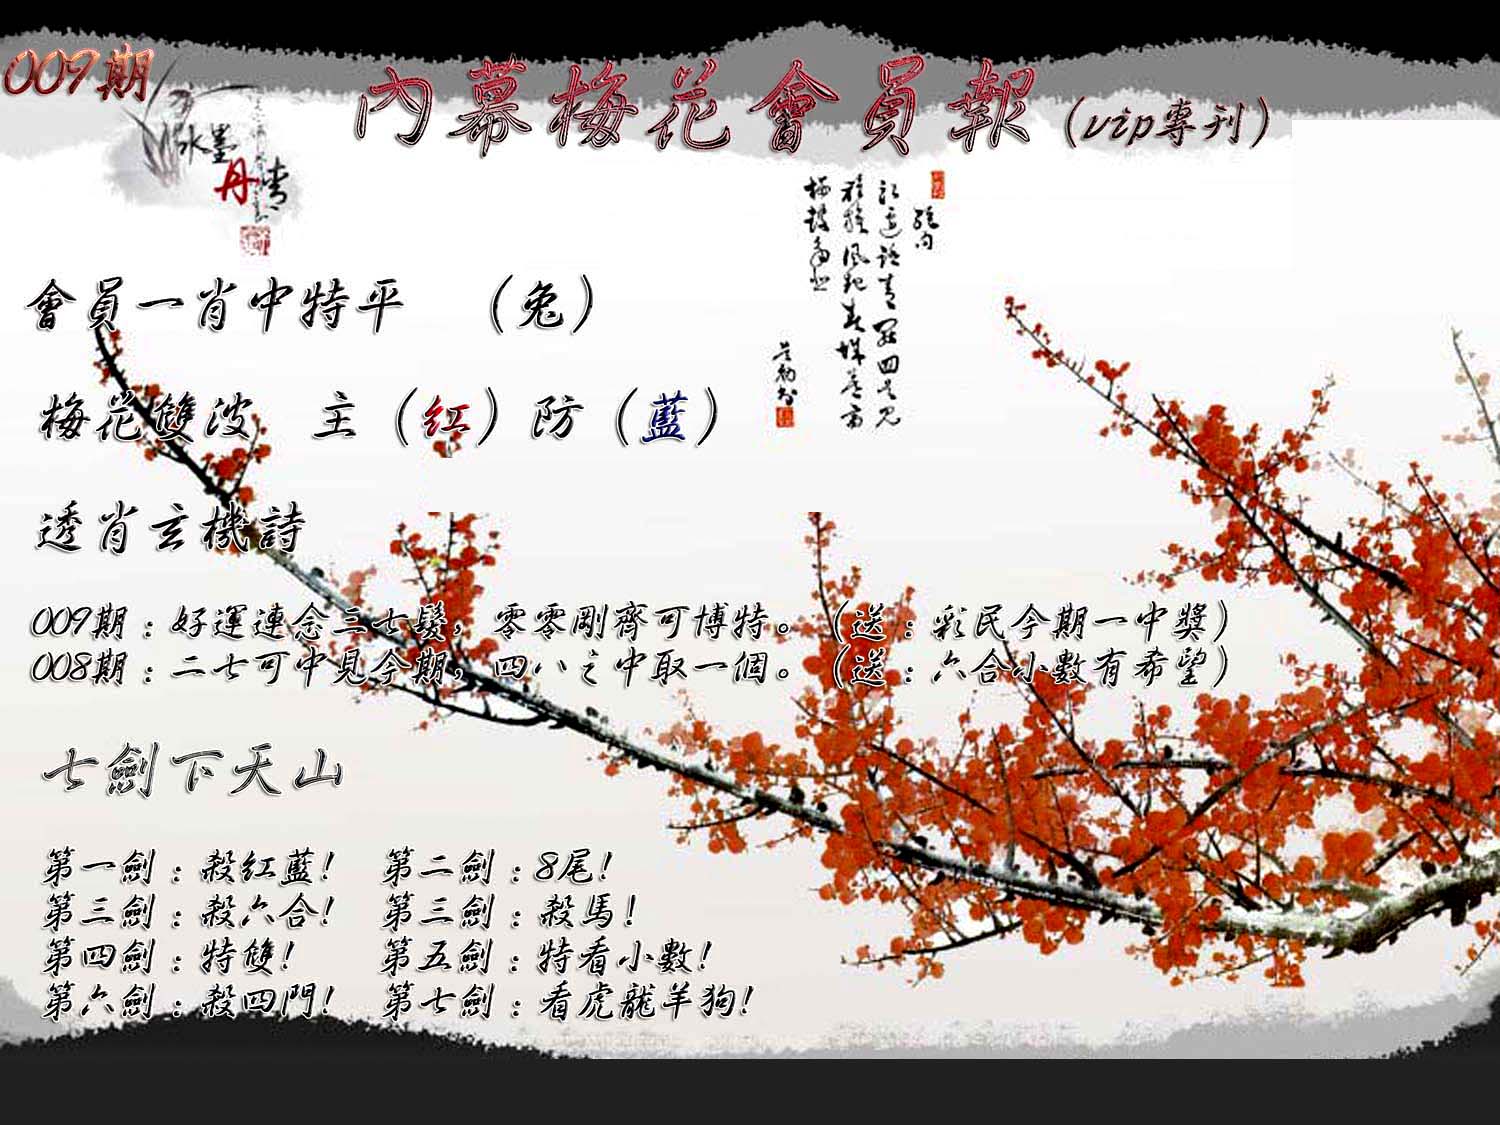 009期
內幕梅花會員報(vip專刊)
水墨
丹青
會員一肖中特平 (兔)
梅花雙波 主(紅)防(藍)
透肖玄機詩
009期:好運連念三七發,零零剛齊可博特。(送:彩民今期一中獎)
008期:二七可中見今期,四八之中取一個。(送:六合小數有希望)
七劍下天山
第一劍:殺紅藍! 第二劍:8尾!
第三劍:殺六合! 第三劍:殺馬!
第四劍:特雙! 第五劍:特看小數!
第六劍:殺四門! 第七劍:看虎龍羊狗!